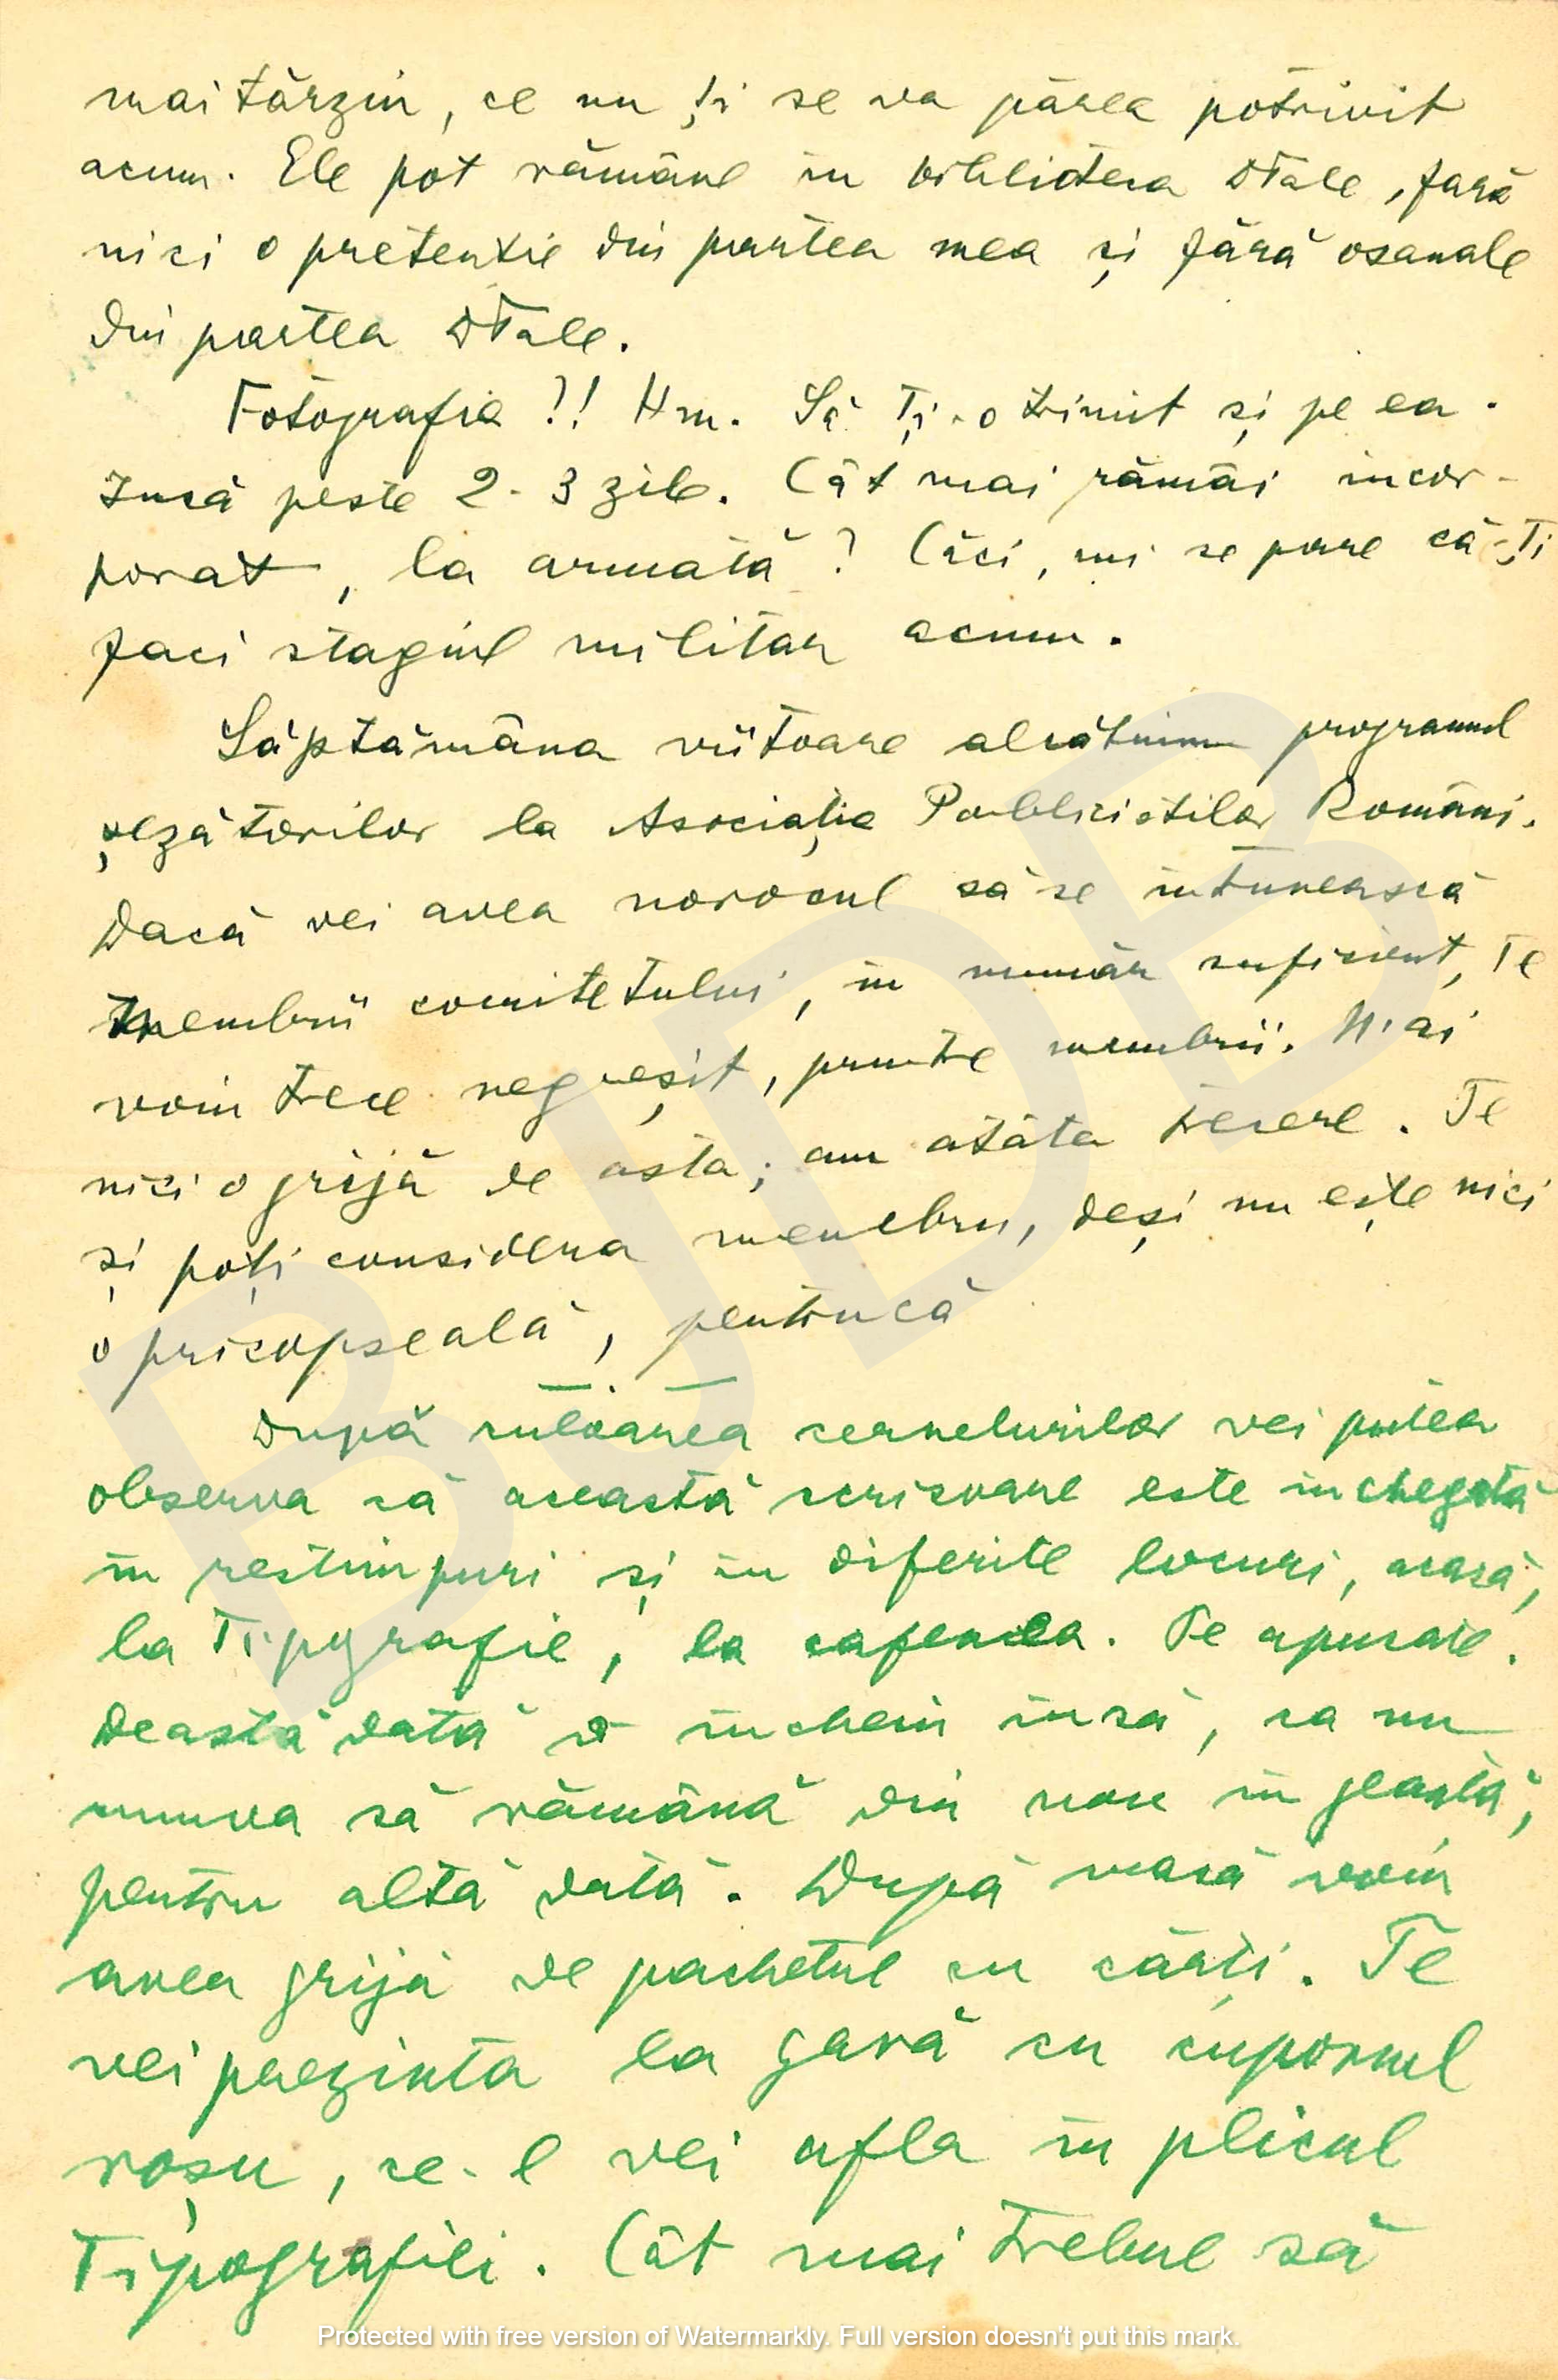 mai târziu, ce nu ți se va părea potrivit
acum. Ele pot rămâne în biblioteca DTale, fară
nici o pretenție din partea mea și fără osanale
din partea DTale.
Fotografia ?! Hm. Să Ți-o trimit și pe ea.
Însă peste 2-3 zile. Cât mai rămâi incor-
porat, la armată? Căci, mi se pare că-Ți
faci stagiul militar acum.
Săptămâna viitoare alcătuim programul
șezătorilor la Asociația Publiciștilor Români.
Dacă vei avea norocul să se întrunească
membrii comitetului, în număr suficient, Te
voiu trece negreșit, printre membrii. N'ai
nici o grijă de asta; am atâta trecere. Te
și poți considera membru, deși nu este nici
o pricopseală, pentrucă
După culoarea cernelurilor vei putea
observa că această scrisoare este închegată
în restimpuri și în diferite locuri, acasă,
la Tipografie, la cafenea. Pe apucate.
Deastă dată o închein însă, ca nu
cumva să rămână din nou în geantă,
pentru altă dată. După masă voiu
avea grijă de pachetul cu cărți. Te
vei prezinta la gară cu cuponul
roșu, ce-l vei afla în plicul
Tipografiei. Cât mai trebue să
BJDB
Protected with free version of Watermarkly. Full version doesn't put this mark.